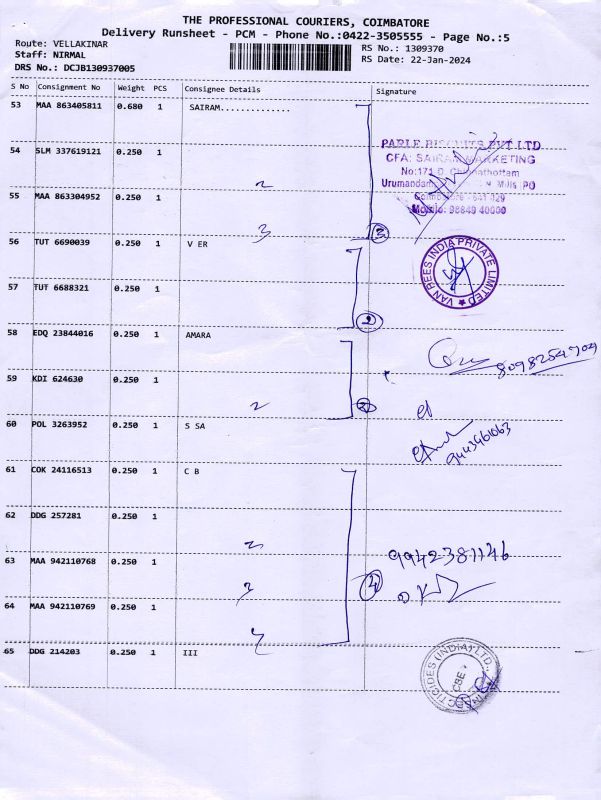 THE PROFESSIONAL COURIERS, COIMBATORE
Delivery Runsheet - PCM - Phone No.:0422-3505555 - Page No.:5
Route: VELLAKINAR
RS No.: 1309370
Staff: NIRMAL
RS Date: 22-Jan-2024
DRS No.: DCJB130937005
S No Consignment No Weight PCS Consignee Details Signature
53 MAA 863405811 0.680 1 SAIRAM..............
PARLE BISCUITS PVT LTD
CFA: SAIRAM MARKETING
54 SLM 337619121 0.250 1
No:171 D,
Urumandam Mills PO
2
55 MAA 863304952 0.250 1
Coimbatore - 641 029
Mobile: 98849 40000
3
3
56 TUT 6690039 0.250 1 V ER
VAN REES INDIA PRIVATE LIMITED
57 TUT 6688321 0.250 1
2
58 EDQ 23844016 0.250 1 AMARA
8098254909
59 KDI 624630 0.250 1
2
2
60 POL 3263952 0.250 1 S SA
9443461063
61 COK 24116513 0.250 1 C B
62 DDG 257281 0.250 1
2
63 MAA 942110768 0.250 1
9942381146
3
4
64 MAA 942110769 0.250 1
65 DDG 214203 0.250 1 III
(INDIA) LTD.
CBE